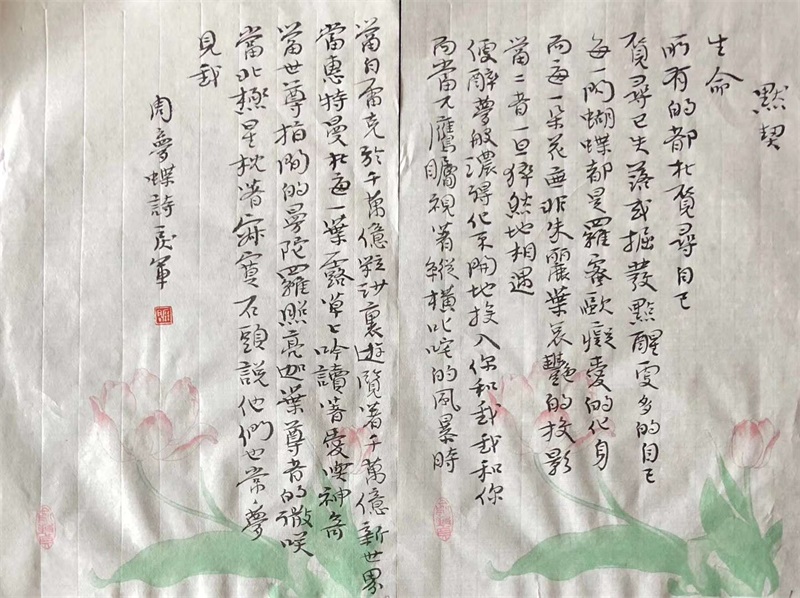 默契
生命
所有的都在覓尋自己
覓尋已失落或掘發點醒更多的自己
每一閃蝴蝶都是羅蜜歐癡愛的化身
而每一朵花無非朱麗葉哀艷的投影
當二者一旦猝然地相遇
便醉夢般濃得化不開地投入你和我我和你
而當兀鷹矚視著縱橫叱咤的風暴時
當白雷克於千萬億粒沙裏遊覽著千萬億新世界
當惠特曼在每一葉露草上吟讀著愛與神奇
當世尊指間的曼陀羅照亮迦葉尊者的微咲
當北極星枕著寂寞石頭說他們也常〻夢
見我
周夢蝶詩 軍